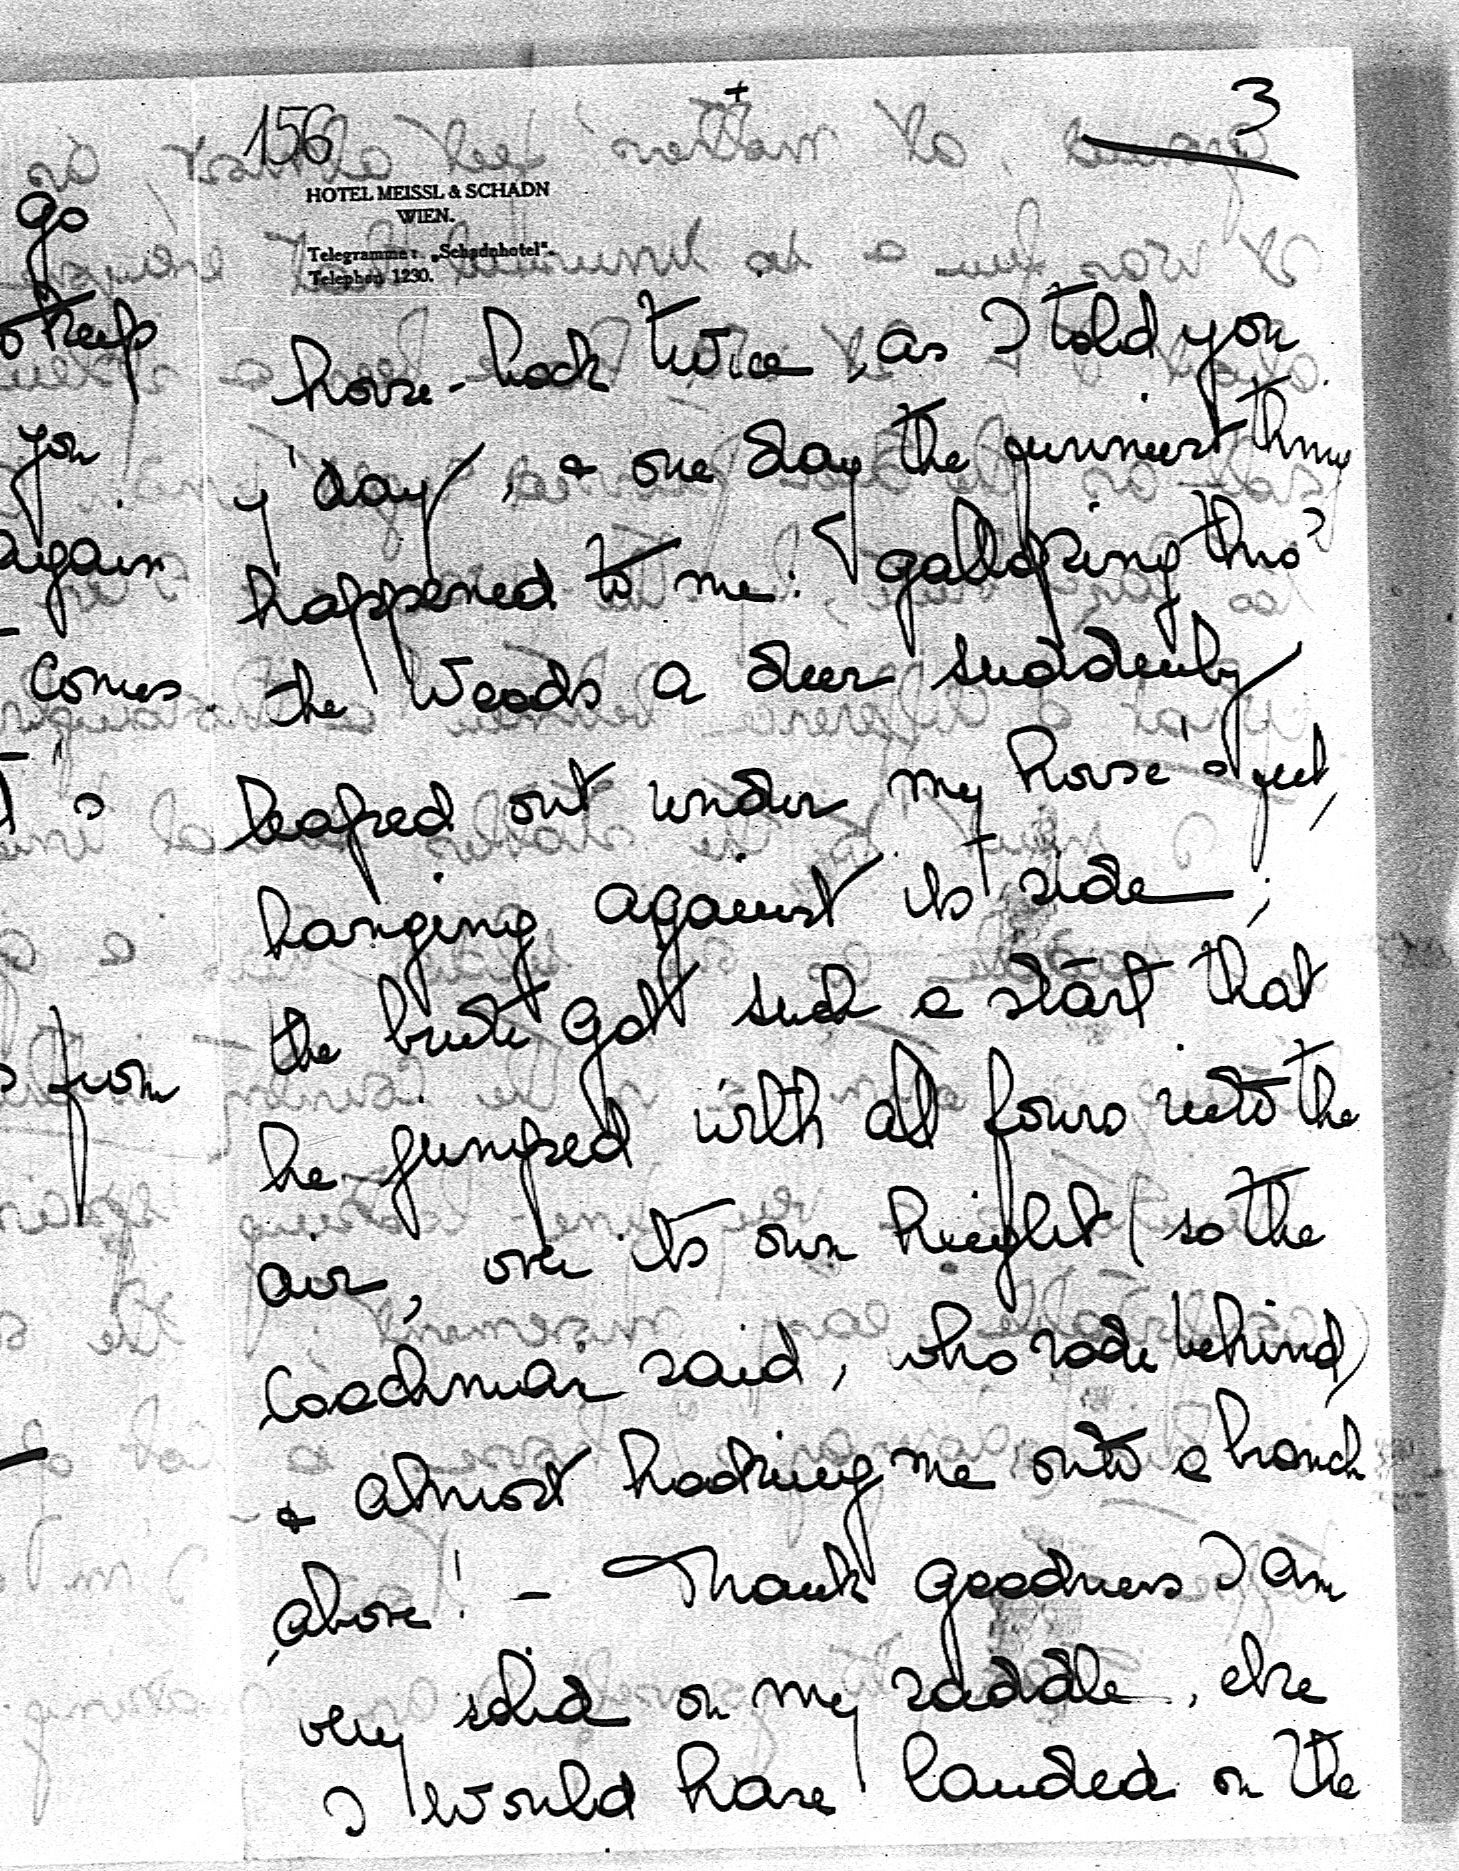 156
+
3
HOTEL MEISSL & SCHADN
WIEN.
Telegramme: „Schadnhotel“.
Telephon 1230.
go
keep
you
again
comes.
from
horse-back twice, as I told you
y'day, & one day the funniest thing
happened to me: galloping thro'
the woods a deer suddenly
leaped out under my horse's feet,
banging against its side;
the brute got such a start that
he jumped with all fours into the
air, over its own height (so the
coachman said, who rode behind)
& almost hooking me onto a branch
above! – Thank goodness I am
very solid on my saddle, else
I would have landed on the